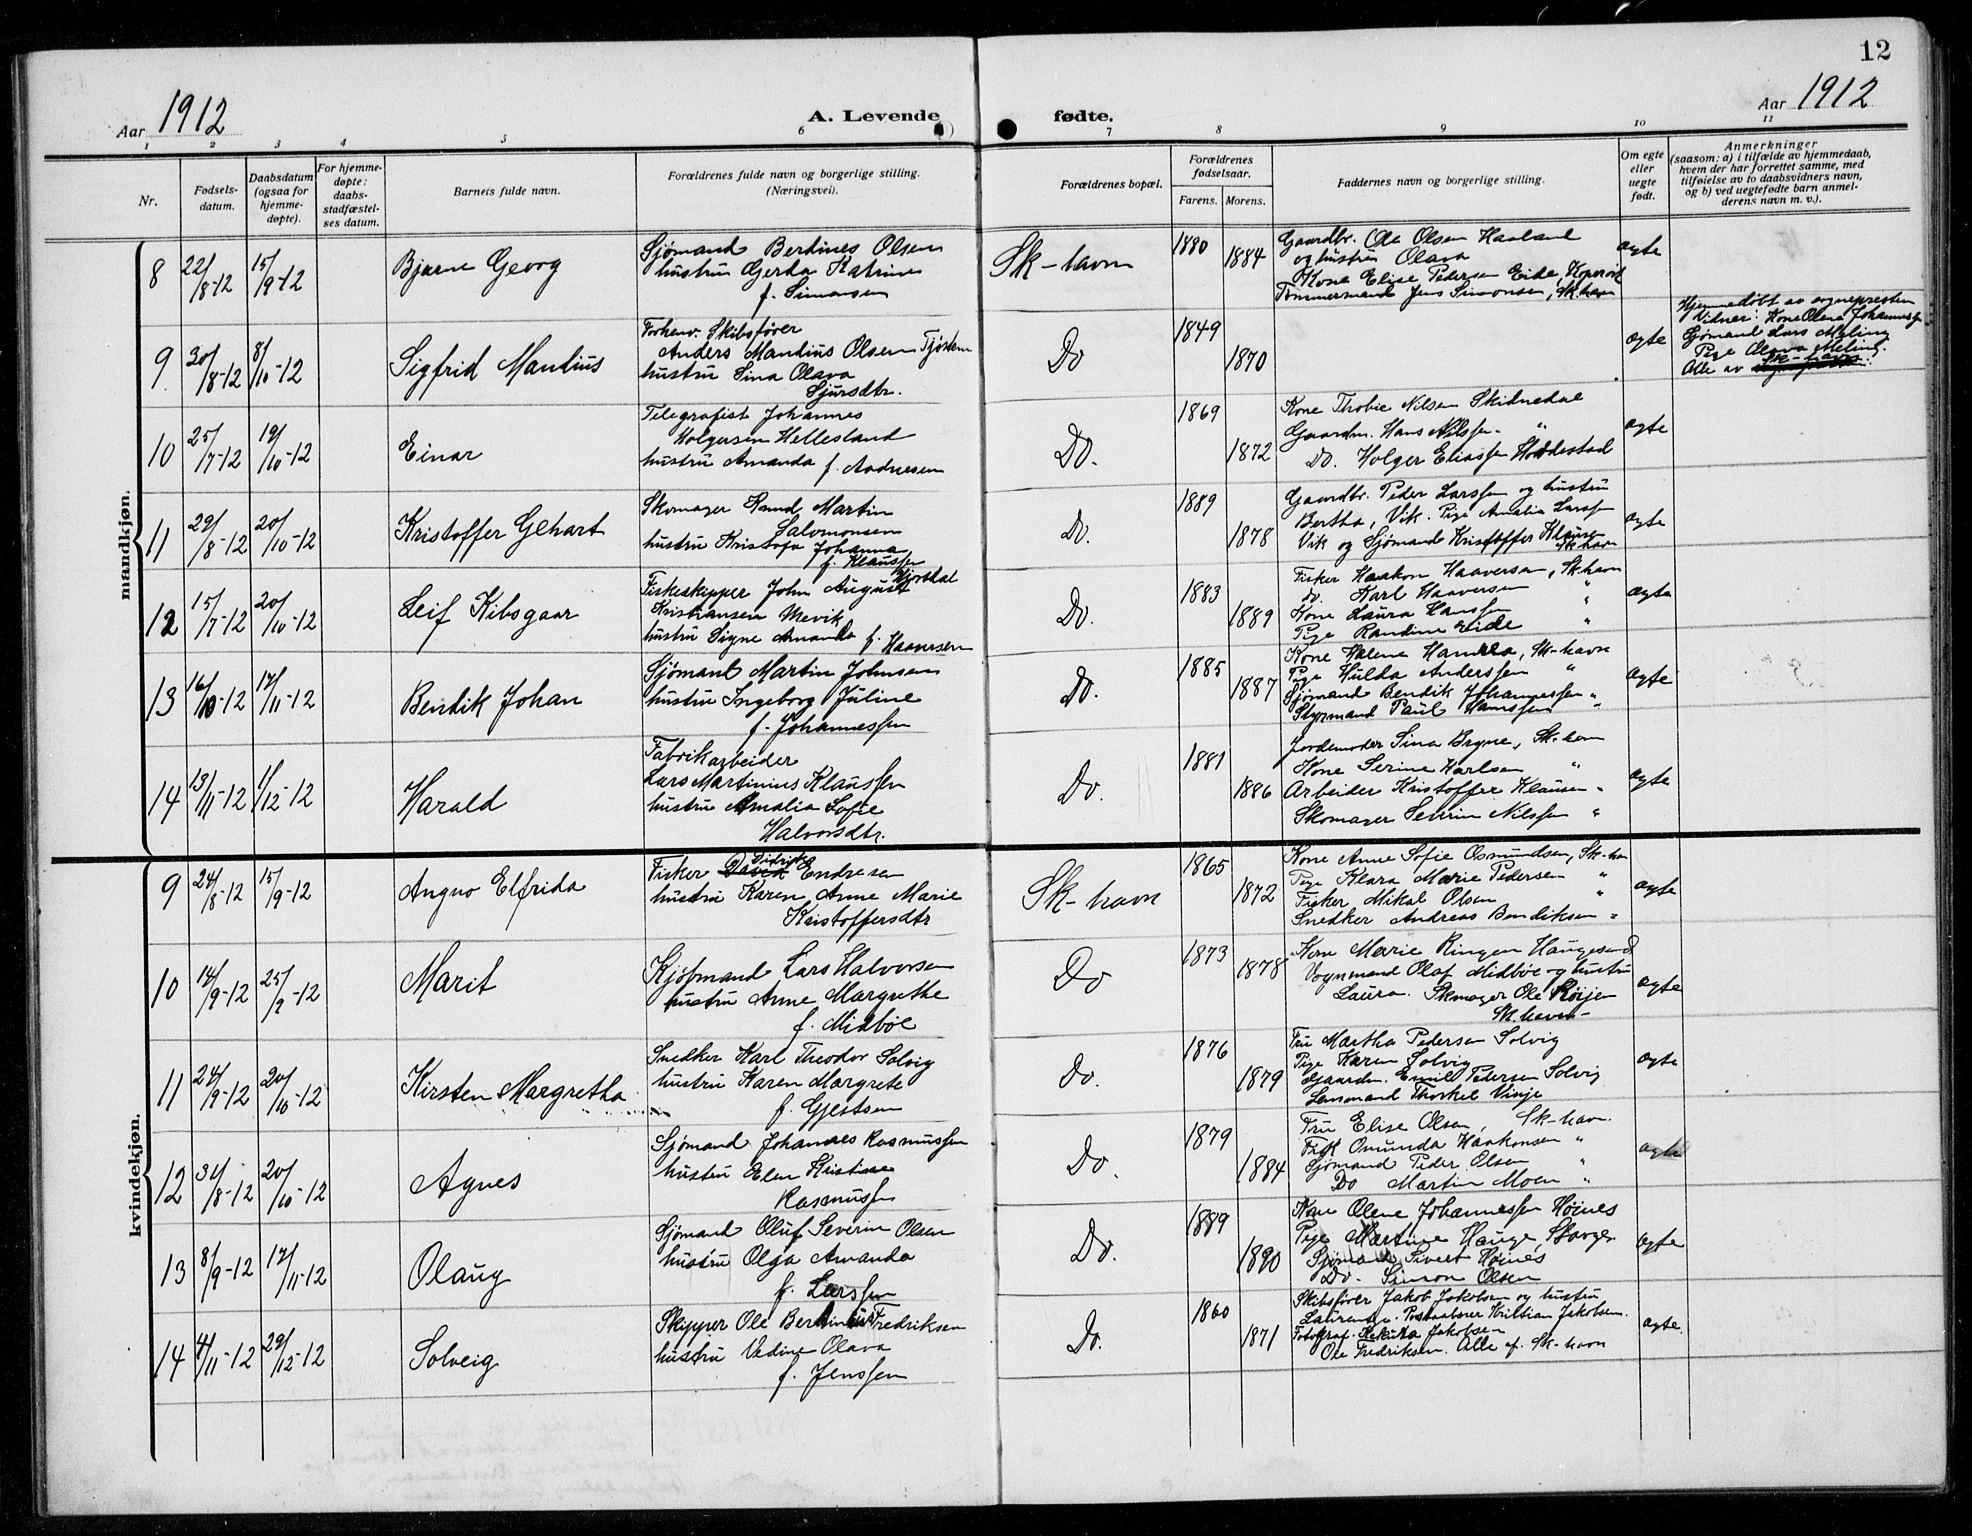 12
Aar 1912
A. Levende
fødte.
Aar 1912
1 2 3 4 5 6 7 8 9 10 11
Nr.
Fødsels-
datum.
Daabsdatum
(ogsaa for
hjemme-
døpte).
For hjemme-
døpte:
daabs-
stadfæstel-
ses datum.
Barnets fulde navn.
Forældrenes fulde navn og borgerlige stilling.
(Næringsvei).
Forældrenes bopæl.
Forældrenes
fødselsaar.
Farens. Morens.
Faddernes navn og borgerlige stilling.
Om egte
eller
uegte
født.
Anmerkninger
(saasom: a) i tilfælde av hjemmedaab,
hvem der har forrettet samme, med
tilføielse av to daabsvidners navn,
og b) ved uegtefødte barn anmel-
derens navn m. v.).
mandkjøn.
8 22/8-12 15/9-12 Bjarne Georg
Sjømand Berdines Olsen
hustru Gerda Katrine
f. Simonsen
Sk-havn 1880 1884
Gaardbr. Ole Olsen Havland
og hustru Olava
Kone Elise Pedersen Eide, Kopervik
Tømmermand Jens Simonsen, Sk.havn
egte
9 30/8-12 8/10-12 Sigfrid Mandius
Forhenv. Skibsfører
Anders Mandius Olsen
hustru Sina Olava
Sjursdtr.
Do 1849 1870
egte
Hjemmedøbt av sognepresten
Vidner: Kone Olene Johannessen
Sjømand Lars Meling
Pige Olava Meling.
Alle av Sk-havn.
10 25/7-12 19/10-12 Einar
Telegrafist Johannes
Holgersen Hellesland
hustru Amanda f. Andresen
Do. 1869 1872
Kone Thobie Nilsen Skidnedal
Gaardm. Hans Nilssen "
Do. Holger Eliassen
egte
11 29/8-12 20/10-12 Kristoffer Gehart
Skomager Knud Martin
Salomonsen
hustru Kristofa Johanna
f. Klaussen
Do. 1889 1878
Gaardbr. Peder Larssen og hustru
Bertha, Vik. Pige Amalia Larssen
Vik og Sjømand Kristoffer Klausen
Sk.havn
egte
12 15/7-12 20/10-12 Leif Kibsgaar
Fiskeskipper John August
Kristiansen Mevik
hustru Signe Amanda f. Haaversen
Do. 1883 1889
Fisker Haakon Haaversen, Sk.havn
Do. Karl Haaversen "
Kone Laura Hanssen
Pige Randine Eide "
egte
13 16/10-12 17/11-12 Bendik Johan
Sjømand Martin Johnsen
hustru Ingeborg Juline
f. Johannessen
Do. 1885 1887
Kone Malene, Sk-havn
Pige Hulda Anderssen "
Sjømand Bendik Johannessen "
Styrmand Paul Hanssen "
egte
14 13/11-12 1/12-12 Harald
Fabrikarbeider
Lars Martinius Klaussen
hustru Amalia Sofie
Halvorsdtr.
Do. 1881 1886
Jordemoder Sina Bryne, Sk-havn
Kone Serine Karlsen "
Arbeider Kristoffer Klausen "
Skomager Severin Nilssen "
egte
kvindekjøn.
9 24/8-12 15/9-12 Angno Elfrida
Fisker Didrik Endresen
hustru Karen Anne Marie
Kristoffersdtr
Sk-havn 1865 1872
Kone Anne Sofie Osmundsen, Sk-havn
Pige Klara Marie Pedersen "
Fisker Mikal Olsen "
Snedker Andreas Bendiksen "
egte
10 14/9-12 25/9-12 Marit
Kjøbmand Lars Halvorsen
hustru Anne Margrethe
f. Midbøe
Do 1873 1878
Kone Marie Ringen Haugesund
Vognmand Olaf Midbøe og hustru
Laura. Skomager Ole
Sk.havn-
egte
11 24/9-12 20/10-12 Kirsten Margretha
Snedker Karl Theodor Solvig
hustru Karen Margrete
f. Gjestsen
Do. 1876 1879
Fru Martha Pedersen Solvig
Pige Karen Solvig
Gaardm. Emil Pedersen Solvig
Lensmand Thorkel Vinje
egte
12 31/8-12 20/10-12 Agnes
Sjømand Johannes Rasmussen
hustru Elen Kristine
Rasmussen
Do. 1879 1884
Fru Elise Olsen, Sk-havn.
Frk Omunda Haakonsen "
Sjømand Peder Olsen "
Do Martin Moen "
egte
13 8/9-12 17/11-12 Olaug
Sjømand Oluf Severin Olsen
hustru Olga Amanda
f. Larssen
Do. 1889 1890
Kone Olene Johannessen Høines
Pige Martine Hauge,
Sjømand Sivert Høines
Do. Simon Olsen
egte
14 4/11-12 29/12-12 Solveig
Skipper Ole Fredriksen
hustru Vadine Olava
f. Jenssen
Do. 1860 1871
Skibsfører Jakob Jakobsen og hustru
Laurentse. Postaabner Kristian Jakobsen.
Fotograf. Jakobsen
Ole Fredriksen. Alle af Sk-havn
egte.